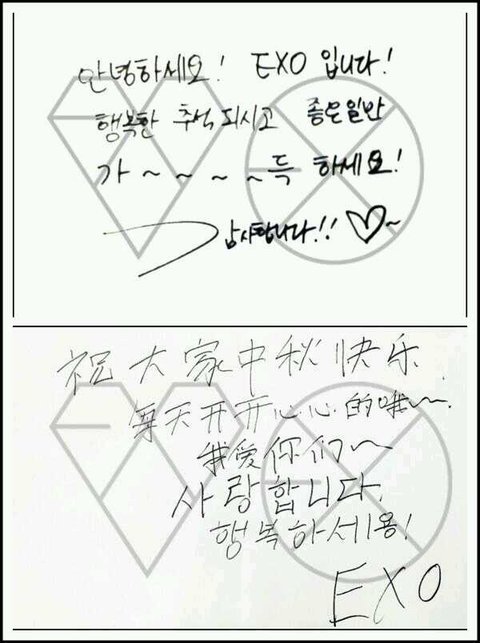 안녕하세요! EXO 입니다!
행복한 추석 되시고 좋은일만
가~~~~득 하세요!
감사합니다!! ♡~
祝大家中秋快乐
每天开开心心的哦~~.
我爱你们~~
사랑합니다.
행복하세용!
EXO